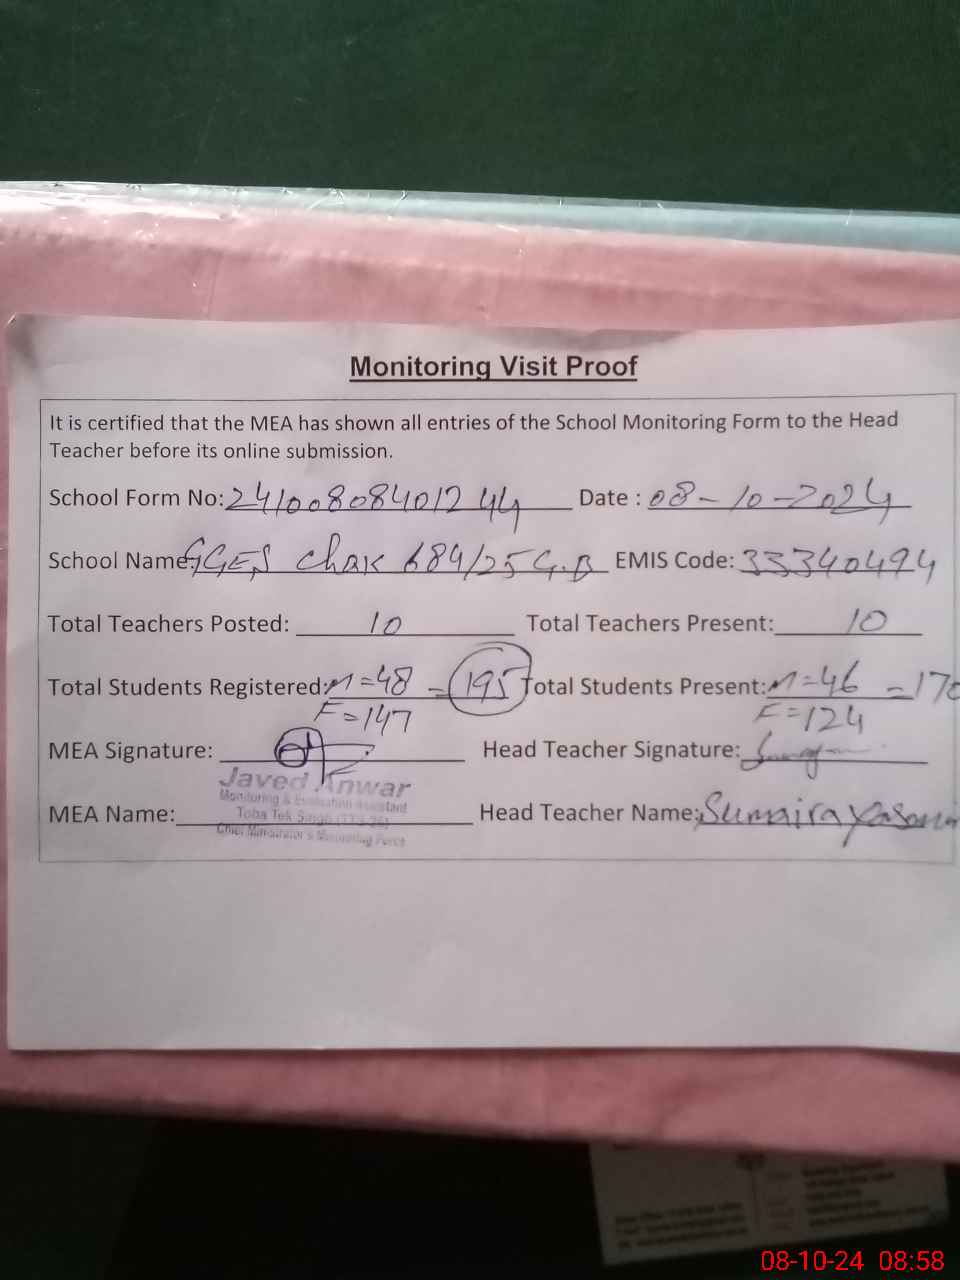 Monitoring Visit Proof
It is certified that the MEA has shown all entries of the School Monitoring Form to the Head
Teacher before its online submission.
School Form No: 24100808401244 Date : 08-10-2024
School Name: GGES Chak 684/25 G.B EMIS Code: 33340494
Total Teachers Posted: 10 Total Teachers Present: 10
Total Students Registered: M=48 = 195 Total Students Present: M=46 =170
F=147 F=124
MEA Signature: Head Teacher Signature:
Javed Anwar
Monitoring & Evaluation Assistant
MEA Name: Toba Tek Singh Head Teacher Name: Sumaira
Chief Minister's Monitoring Force
08-10-24 08:58